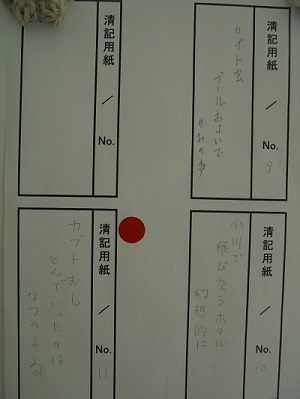 清記用紙 / No. 9
プールおよいで
せみの
清記用紙 / No. 10
小川で
飛び交うホタル
幻想的に
清記用紙 / No.
清記用紙 / No. 11
カブトむし
とんでいったのは
なつのよる